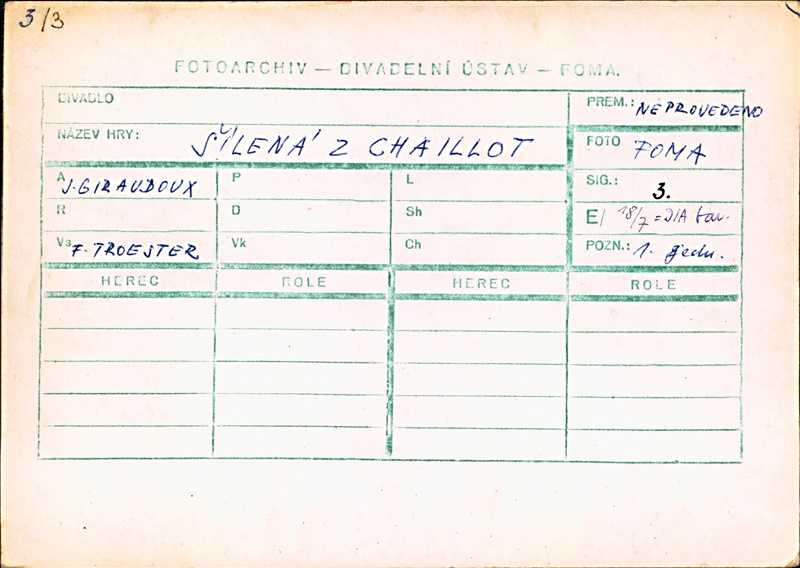 3/3
FOTOARCHIV — DIVADELNÍ ÚSTAV — FOMA.
DIVADLO
PREM.: NEPROVEDENO
NÁZEV HRY: ŠÍLENÁ Z CHAILLOT
FOTO FOMA
A J. GIRAUDOUX P L SIG.: 3.
R D Sh E/ 18/7 = DIA bar.
Vs F. TROESTER Vk Ch POZN.: 1. jedn.
HEREC ROLE HEREC ROLE